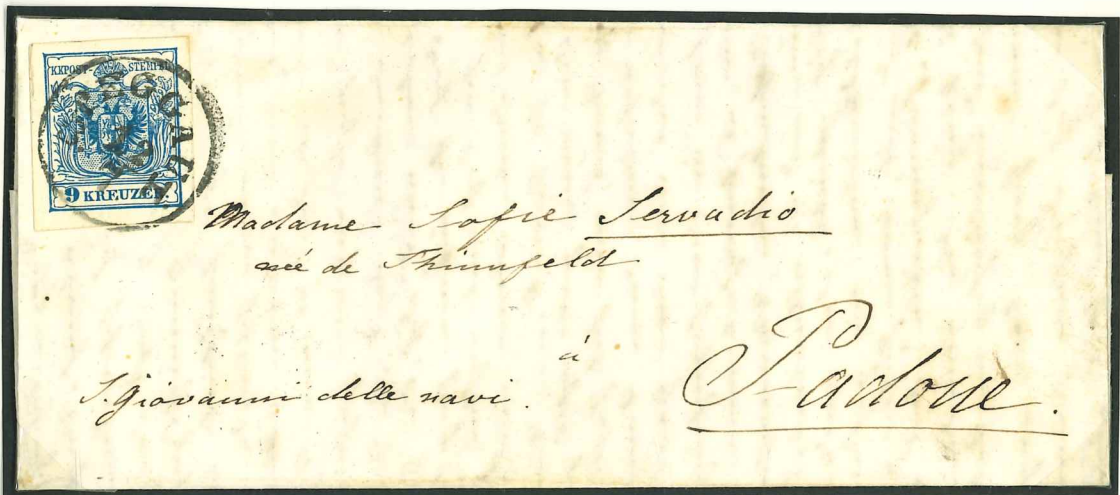 KKPOST STEMPEL
9 KREUZER.
Madame Sofie Servadio
née de Thinnfeld
à
Padoue.
S. Giovanni delle navi.